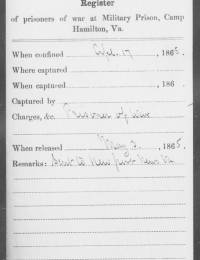 Register
of prisoners of war at Military Prison, Camp
Hamilton, Va.
When confined Apl. 17, 1865.
Where captured
When captured , 186 .
Captured by
Charges, &c. Prisoner of War
When released May 2, 1865.
Remarks: Sent to New port News Va